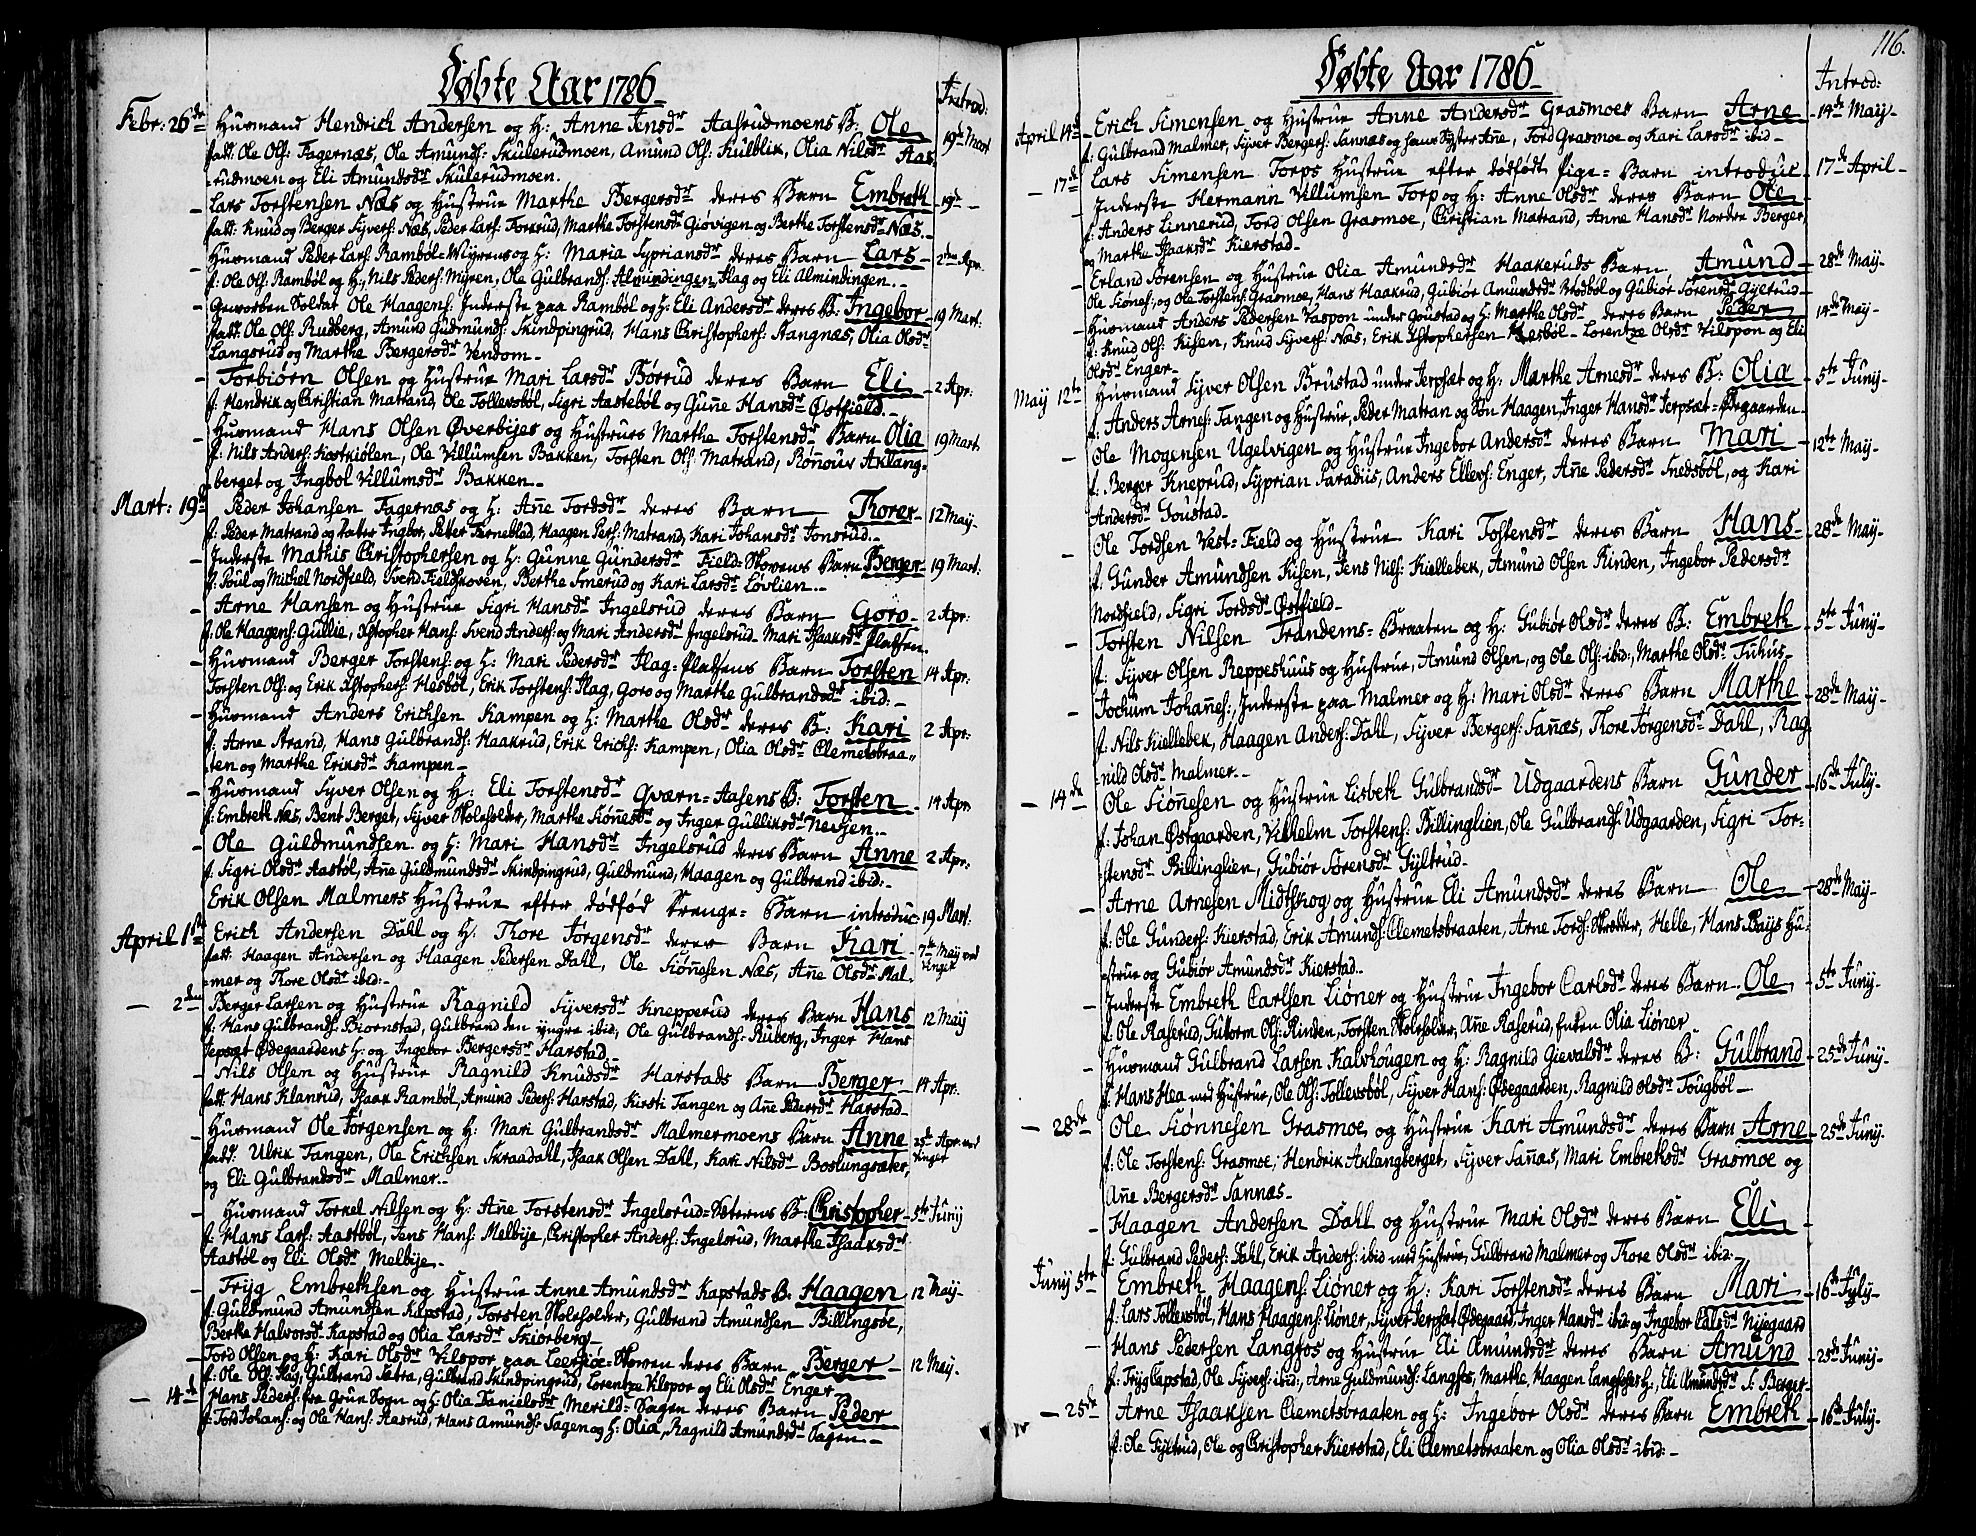 Døbte Aar 1786
Introd:
Febr: 26de Huusmand Hendrich Andersen og H: Anne Jensdr Aasrudmoens B: Ole 19de Mart
fadd: Ole Ols: Fagernæs, Ole Amunds: Skulerudmoen, Amund Ols: Kulblik, Olia Nilsdr Aas
rudmoen og Eli Amundsdr Skulerudmoen.
Lars Torstensen Næs og Hustrue Marthe Bergersdr deres Barn Embreth 19de
fadd: Knud og Berger Syvers: Næs, Peder Lars: Forrud, Marthe Torstensdr Giøvigen og Berthe Torstensdr Næs.
Huusmand Peder Lars: Rambøl-Myrens og H: Maria Sypriansdr deres Barn Lars 2den Apr.
f: Ole Ols: Rambøl og H:, Nils Peders: Myren, Ole Gulbrands: Almindingen, Flag og Eli Almindingen.
Gevorben Soldat Ole Haagens: Inderste paa Rambøl og H: Eli Andersdr deres B: Ingebor 19 Mart:
fadd: Ole Ols: Rudberg, Amund Gudmunds: Skindpingrud, Hans Christophers: Stangnæs, Olia Olsdr
Langsrud og Marthe Bergersdr Vendom
Torbiørn Olsen og Hustrue Mari Larsdr Børrud deres Barn Eli 2 Apr.
f: Hendrik og Christian Matrand, Ole Tollevsbøl, Sigri Aastebøl og Gunne Hansdr Østfield
Huusmand Hans Olsen Øverbyes og Hustrues Marthe Torstensdr Barn Olia 19 Mart.
f: Nils Anders: Kostkiølen, Ole Villumsen Bakken, Torsten Ols: Matrand, Rønour Aklang
berget og Ingbol Villumsdr Bakken
Mart: 19de Peder Johansen Fagernæs og H: Anne Tordsdr deres Barn Thorer 12 May
f: Peder Matrand og Dater Ingbor, Petter Farneblad, Haagen Pers: Matrand, Kari Johansdr Jonsrud.
Inderste Mathis Christophersen og H: Gunne Gundersdr Field-Skovens Barn Berger 19 Mart:
f: Poul og Mickel Nordfield, Svend Fieldskoven, Berthe Smerud og Kari Larsdr Løvlien.
Arne Hansen og Hustrue Sigri Hansdr Ingelsrud deres Barn Goro 2 Apr:
f: Ole Haagens: Gullie, Xstopher Hans: Svend Anders: og Mari Andersdr Ingelsrud Mari Isaaksdr Platsen.
Huusmand Berger Torstens: og H: Mari Pedersdr Flag-Platsens Barn Torsten 14 Apr:
Torsten Ols: og Erik Xstophers: Hesbøl, Erik Torstens: Flag, Goro og Marthe Gulbrandsdr ibid:
Huusmand Anders Erichsen Kampen og H: Marthe Olsdr deres B: Kari 2 Apr:
f: Arne Strand, Hans Gulbrands: Haakrud, Erik Erichs: Kampen, Olia Olsdr Clemetsbraa
ten og Marthe Eriksdr Kampen
Huusmand Syver Olsen og H: Eli Torstensdr Qværn-Aasens B: Torsten 14 Apr.
f: Embreth Næs, Bent Berget, Syver Skoleholder, Marthe Siønesdr og Inger Gulliksdr Nevsjen.
Ole Guldmundsen og H: Mari Hansdr Ingelsrud deres Barn Anne 2 Apr:
f: Sigri Olsdr Aastøl, Anne Guldmundsdr Skindpingrud, Guldmund, Haagen og Gulbrand ibid:
Erik Olsen Malmers Hustrue efter dødfød Drenge-Barn introduc 19 Mart.
April 1ste Erich Andersen Dahl og H: Thore Jørgensdr deres Barn Kari 7de May ved Vinger
fadd: Haagen Andersen og Haagen Pedersen Dahl, Ole Siønnesen Næs, Anne Olsdr Mal
mer og Thore Olsdr ibid:
2den Berger Larsen og Hustrue Ragnild Syversdr Knepperud deres Barn Hans 12 May
f: Hans Gulbrands: Biornstad, Gulbrand den yngre ibid:, Ole Gulbrands: Ruberg, Inger Hans
Jepsæt Ødegaardens H: og Ingebor Bergersdr Harstad
Nils Olsen og Hustrue Ragnild Knudsdr Harstads Barn Berger 14 Apr.
fadd: Hans Klanrud, Isaak Rambøl, Amund Peders: Harstad, Kirsti Tangen og Anne Pedersdr Harstad
Huusmand Ole Jørgensen og H: Mari Gulbrandsdr Malmermoens Barn Anne 23de Apr. ved Vinger
fadd: Ulrik Tangen, Ole Erichsen Skraadahl, Isaak Olsen Dahl, Kari Nilsdr Boslungsæter,
og Eli Gulbrandsdr Malmer.
Huusmand Torkel Nilsen og H: Anne Torstensdr Ingelsrud-Sæterens B: Christopher 5te Junij
f: Hans Lars: Aastbøl, Jens Hans: Melbije, Christopher Anders: Ingelsrud, Marthe Isaaksdr
Aastøl og Eli Olsdr Melbije
Tryg Embrethsen og Hustrue Anne Amundsdr Kapstads B: Haagen 12 May
f: Guldmund Amundsen Kapstad, Torsten Skoleholder, Gulbrand Amundsen Billingsøe,
Berthe Halvorsdr Kapstad og Olia Larsdr Skiorberg
Tord Olsen og H: Kari Olsdr Vilspor paa Leersiøe-Skoven deres Barn Berger 12 May.
f: Ole Ols: Flag, Gulbrand Sætra, Gulbrand Skindpingrud, Lorentze Vilspor og Eli Olsdr Enger
14de Hans Peders: fra Grue Sogn og H: Olia Danielsdr Merild-Sagen deres Barn Peder
f: Tord Johans: og Ole Hans: Aasrud, Hans Amunds: Sagen og H: Olia, Ragnild Amundsdr Sagen
116.
Døbte Aar 1786
Introd:
April 14de Erich Simensen og Hustrue Anne Andersdr Grasmoes Barn Arne 14de May
f: Gulbrand Malmer, Syver Bergers: Sannæs og hans Syster Anne, Tord Grasmoe og Kari Larsdr ibid
17de Lars Simensen Torps Hustrue efter dødfødt Pige-Barn introduc 17de April
Inderste Hermann Villumsen Torp og H: Anne Olsdr deres Barn Ole
f: Anders Linnerud, Tord Olsen Grasmoe, Christian Matrand, Anne Hansdr Nordre Berger,
og Marthe Isaaksdr Kierstad
Erland Sørensen og Hustrue Olia Amundsdr Haakeruds Barn, Amund 28de May
Ole Siønes: og Ole Torstens: Grasmoe, Hans Haakrud, Gubiør Amundsdr Brødbøl og Gubiør Sørensdr Gyltrud
Huusmand Anders Pedersen Vaspon under Goustad og H: Marthe Olsdr deres Barn Peder 14de May
f: Knud Ols: Kisen, Knud Syvers: Næs, Erik Xstophersen Hesbøl Lorentze Olsdr Vilspon og Eli
Olsdr Enger
May 12te Huusmand Syver Olsen Brustad under Jerpsæt og H: Marthe Arnesdr deres B: Olia 5te Junij
f: Anders Arnes: Tangen og Hustrue, Peder Matran og Søn Haagen, Inger Hansdr Jerpsæt-Ødegaarden
Ole Mogensen Ugelvigen og Hustrue Ingebor Andersdr deres Barn Mari 12te May
f: Berger Kneprud, Syprian Paradiis, Anders Ellevs: Enger, Anne Pedersdr Snedsbøl, og Kari
Andersdr Goustad
Ole Tordsen Vest-Field og Hustrue Kari Tostensdr deres Barn Hans 28de May
f: Gunder Amundsen Kisen, Jens Nils: Kiellebek, Amund Olsen Rinden, Ingebor Pedersdr
Nordfield, Sigri Tordsdr Østfield
Torsten Nilsen Trandems-Braaten og H: Gubiør Olsdr deres B: Embreth 5te Junij
f: Syver Olsen Reppeshuus og Hustrue, Amund Olsen, og Ole Ols: ibid:, Marthe Olsdr Tuhus
Jochum Johannes:, Inderste paa Malmer og H: Mari Olsdr deres Barn Marthe 28de May
f: Nils Kiellebek, Haagen Anders: Dahl, Syver Bergers: Sannæs, Thore Jørgensdr Dahl, Rag
nild Olsdr Malmer
14de Ole Siønnesen og Hustrue Lisbeth Gulbrandsdr Udgaardens Barn Gunder 16de July
f: Johan Østgaarden, Vilhelm Torstens: Billinglien, Ole Gulbrands: Udgaarden, Sigri Tor
stensdr Billinglien, Gubiør Sørensdr Gyltrud
Arne Arnesen Midtskog og Hustrue Eli Amundsdr deres Barn Ole 28de May
f: Ole Gunders: Kierstad, Erik Amunds: Clemetsbraaten, Arne Tords: Skredder, Helle, Hans Bays Hu
strue og Gubiør Amundsdr Kierstad
Inderste Embreth Carlsen Liøner og Hustrue Ingebor Carlsdr deres Barn Ole 5te Junij
f: Ole Raserud, Guttorm Ols: Rinden, Torsten Skoleholder, Anne Raserud, Enken Olia Liøner
Huusmand Gulbrand Larsen Kalvhougen og H: Ragnild Gievalsdr deres B: Gulbrand 25de Junij
f: Hans Hea med Hustrue, Ole Ols: Tollevsbøl, Syver Hans: Ødegaarden, Ragnild Olsdr Tougbøl
28de Ole Siønnesen Grasmoe og Hustrue Kari Amundsdr deres Barn Arne 25de Junij
f: Ole Torstens: Grasmoe, Hendrik Aklangberget, Syver Sannæs, Mari Embrethsdr Grasmoe og
Anne Bergersdr Sannæs
Haagen Andersen Dahl og Hustrue Mari Olsdr deres Barn Eli
f: Gulbrand Peders: Dahl, Erik Anders: ibid med Hustrue, Gulbrand Malmer og Thore Olsdr ibid:
Junij 5te Embreth Haagens: Liøner og H: Kari Torstensdr deres Barn Mari 16de July
f: Lars Tollevsbøl, Hans Haagens: Liøner, Syver Jerpsæt Ødegaard, Inger Hansdr ibid og Ingebor Calsdr Nysegaard
Hans Pedersen Langfos og Hustrue Eli Amundsdr deres Barn Amund 25de Junij
f: Tryg Capstad, Ole Syvers: ibid:, Arne Guldmunds: Langfos, Marthe, Haagen Langfoses H:, Eli Amundsdr S: Berger
25de Arne Isaaksen Clemetsbraaten og H: Ingebor Olsdr deres Barn Embreth 16de July
f: Ole Gyltrud, Ole og Christopher Kierstad, Eli Clemetsbraaten og Olia Olsdr ibid: